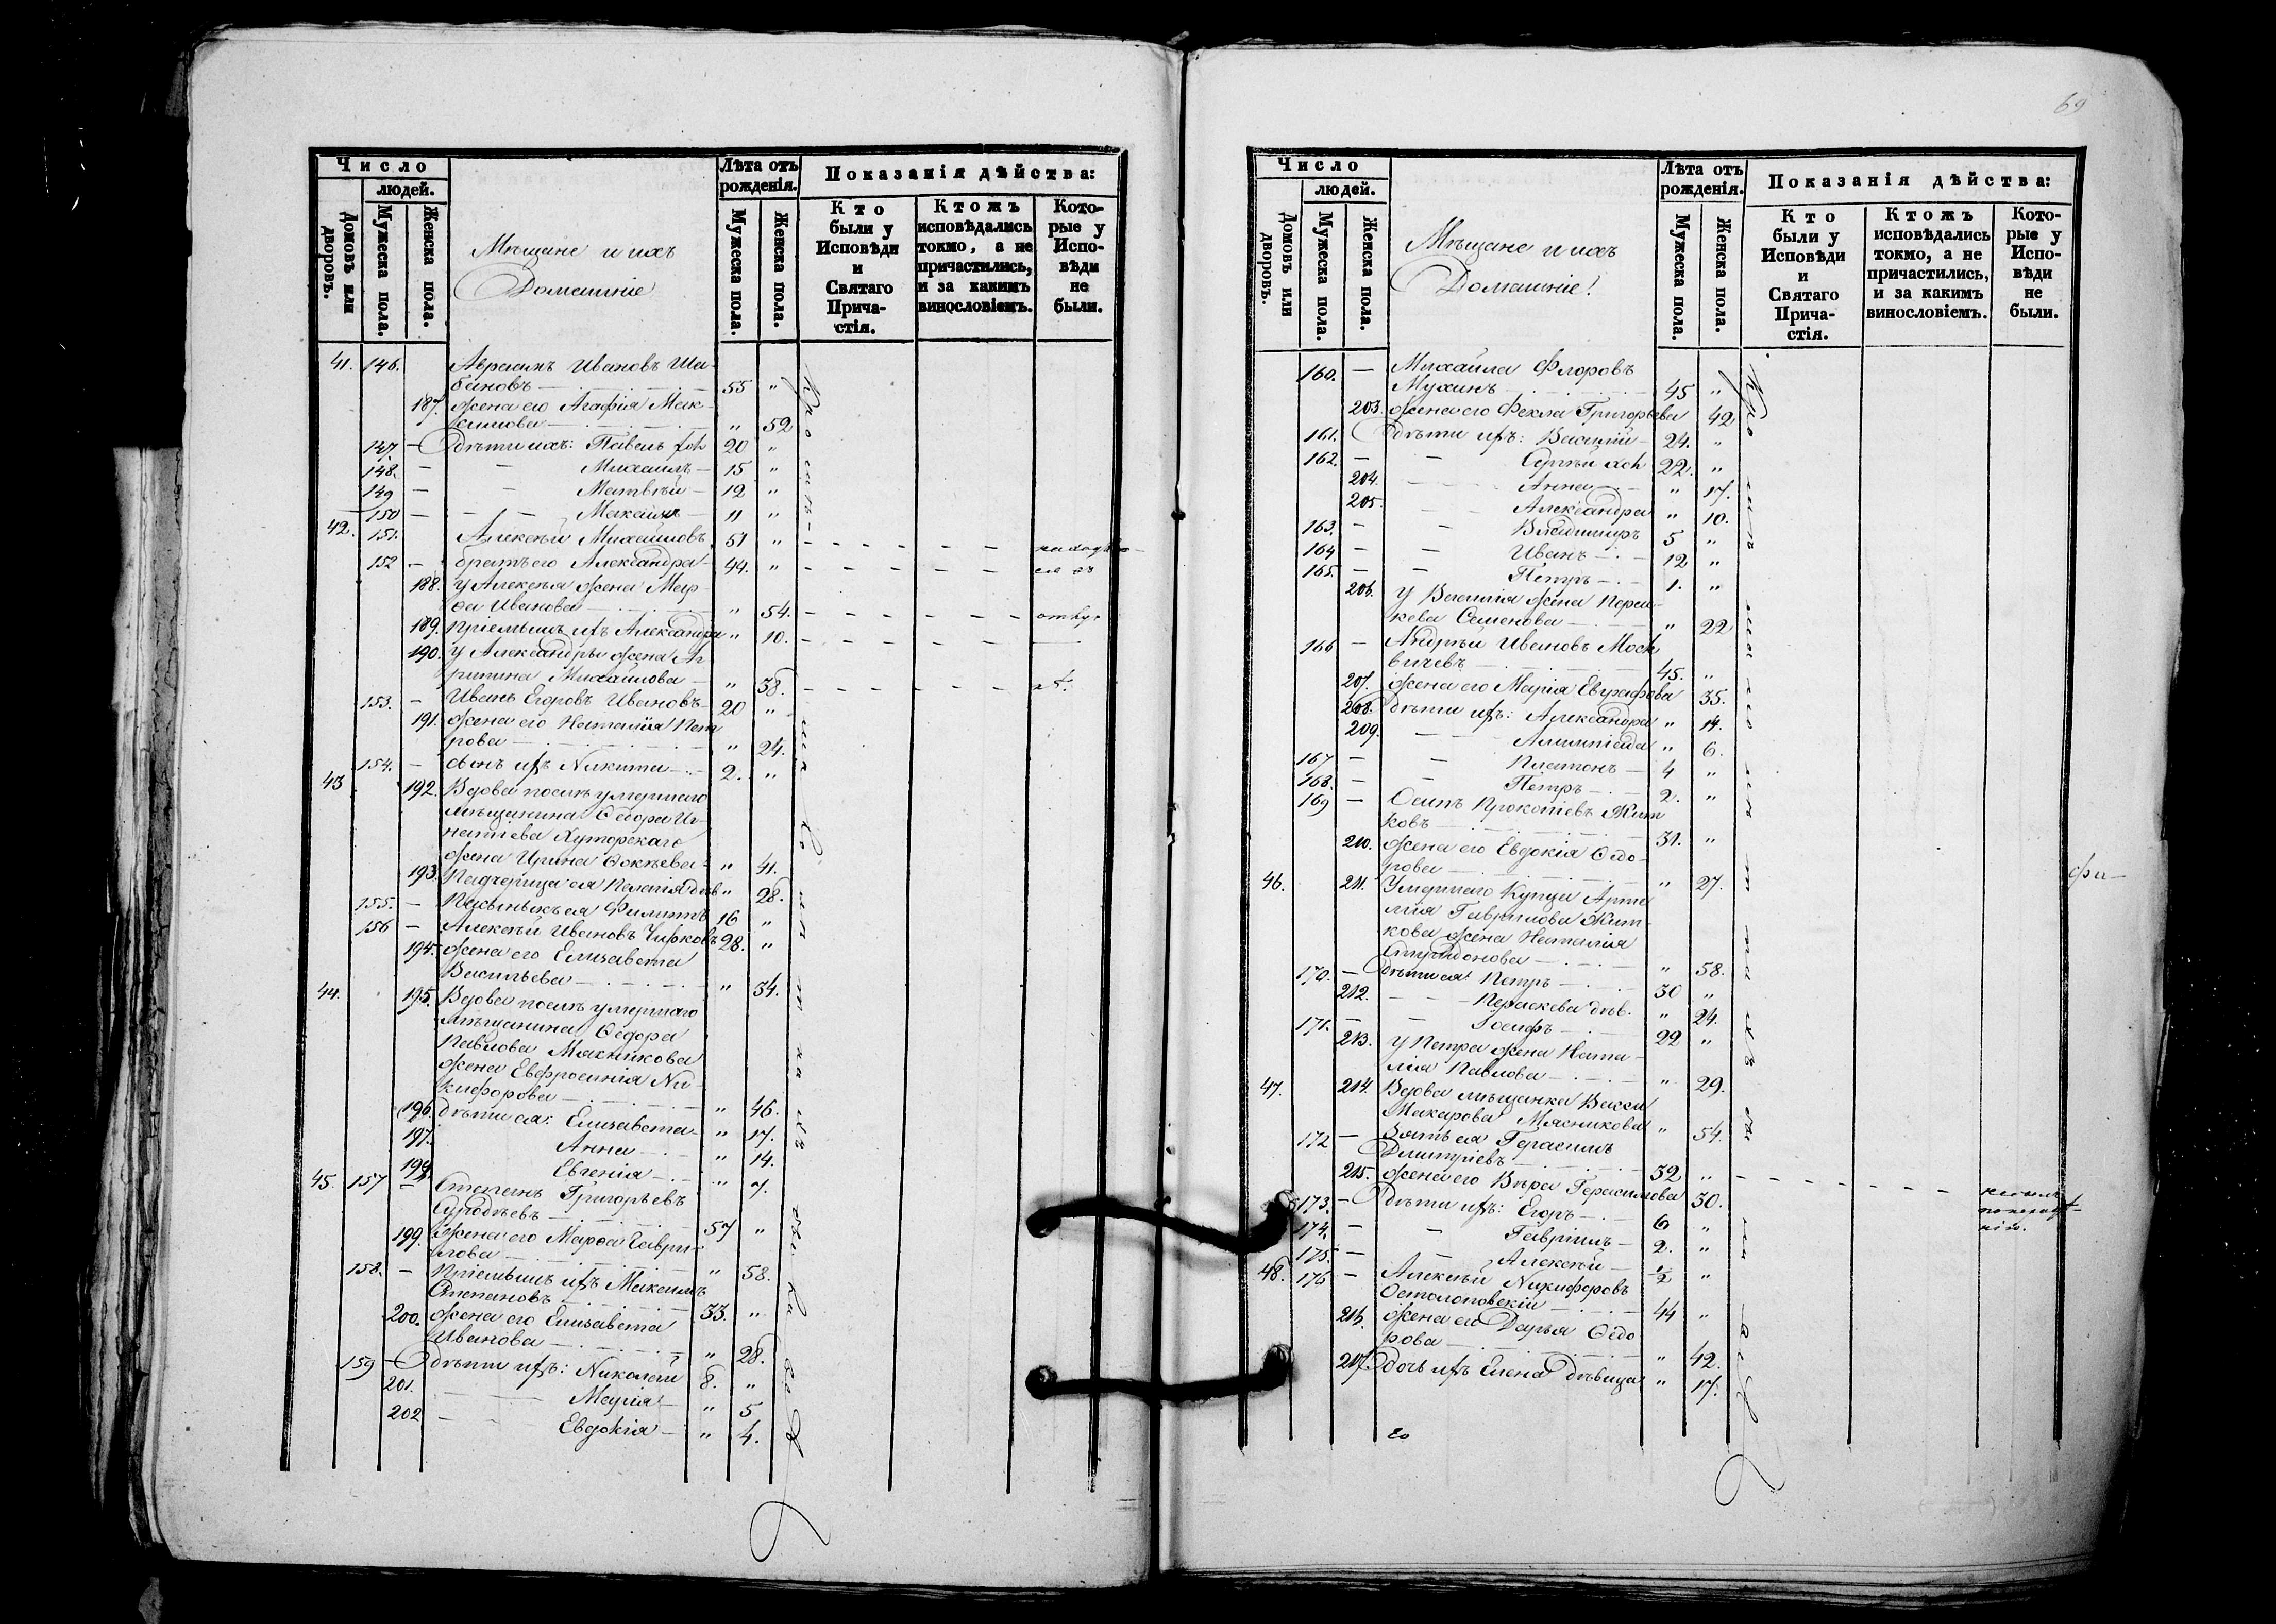 Число
людей.
Домовъ или дворовъ.
Мужеска пола.
Женска пола.
Мѣщане и ихъ
Домашніе
Лѣта отъ рожденія.
Мужеска пола.
Женска пола.
Показанія дѣйства:
Кто были у Исповѣди и Святаго Причастія.
Ктожъ исповѣдались токмо, а не причастились, и за какимъ винословіемъ.
Которые у Исповѣди не были.
41. 146. Авраамъ Ивановъ Ша-
бановъ 55 "
187. жена его Агафія Мак-
симова " 52
147. — дѣти ихъ: Павелъ хол 20 "
148. — — Михаилъ — 15 "
149 — — Матвѣй — 12 "
150 — — — Максимъ — 11 "
42. 151. Алексѣй Михайловъ 51 "
152 — братъ его Александра 44. "
188. У Алексѣя жена Мар-
ѳа Иванова " 54.
189. Пріемышъ ихъ Александра " 10.
190. У Александры жена Аг
рипина Михайлова — " 38.
153. — Иванъ Егоровъ Ивановъ 20 "
191. жена его Наталия Пет
рова " 24.
154. — сынъ ихъ Никита 2. "
43 192. Вдова послѣ умершаго
мѣщанина Ѳедора Иг-
натіева Хуторскаго
жена Ирина Ѳокѣева " 41.
193. Падчерица ея Пелагія дѣв " 28.
155. — Пасынокъ ея Филиппъ 16 "
156 — Алексѣй Ивановъ Чижковъ 28. "
194. жена его Елизавета
Васильева " 34.
44. 195. Вдова послѣ умершаго
мѣщанина Ѳедора
Павлова Мясникова
жена Евфросинія Ни-
кифорова " 46.
196. дѣти ея: Елизавета " 17.
197. Анна " 14.
198. Евгенія " 7.
45. 157 Степанъ Григорьевъ
57 "
199. жена его Марѳа Гаври-
лова " 58.
158. — Пріемышъ ихъ Максимъ
Степановъ 33. "
200. жена его Елизавета
Иванова " 28.
159 — дѣти ихъ: Николай 8. "
201. Марія " 5
202 — Евдокія — " 4.
69
Число
людей.
Домовъ или дворовъ.
Мужеска пола.
Женска пола.
Мѣщане и ихъ
Домашніе!
Лѣта отъ рожденія.
Мужеска пола.
Женска пола.
Показанія дѣйства:
Кто были у Исповѣди и Святаго Причастія.
Ктожъ исповѣдались токмо, а не причастились, и за какимъ винословіемъ.
Которые у Исповѣди не были.
160. — Михайла Флоровъ
Мухинъ 45 "
203. жена его Фекла Григорьева 42
161. дѣти ихъ: Василій 24. "
162. — — Сергѣй хол 22. "
204. Анна " 17.
205. Александра " 10.
163. — — Владимиръ 5 "
164 — — Иванъ 12 "
165. — — Петръ 1. "
206. У Василія жена Параc-
кева Семенова " 22
166 — Андрѣй Ивановъ Моск
вичевъ 45. "
207. жена его Марія Евграфова 35.
208. дѣти ихъ: Александра " 14.
209. Алимпіада " 6.
167 — — Платонъ — 4 "
168. — — Петръ 2. "
169 — Осипъ Прокопіевъ Жит
ковъ 31. "
210. жена его Евдокія Ѳедо-
рова " 27.
46. 211. Умершаго Купца Арте
мія Гаврилова Жит-
кова жена Наталія
Спиридонова " 58.
170. — дѣти ея: Петръ 30 "
212. — — Параскева дѣв. " 24.
171. — — Іосифъ 22 "
213. У Петра жена Ната-
лія Павлова " 29.
47. 214. Вдова мѣщанка Васса
Макарова Мясникова " 54.
172 — Зять ея Герасимъ
Дмитріевъ 32 "
215. жена его Вѣра Герасимова 30.
173. — дѣти ихъ: Егоръ 6 "
174. — — Гавріилъ — 2. "
175. — — Алексѣй — 1/2 "
48. 176 — Алексѣй Никифоровъ
Остолоповскій 44 "
216. жена его Дарья Ѳедо
рова " 42.
217. дочь ихъ Елена дѣвица " 17.